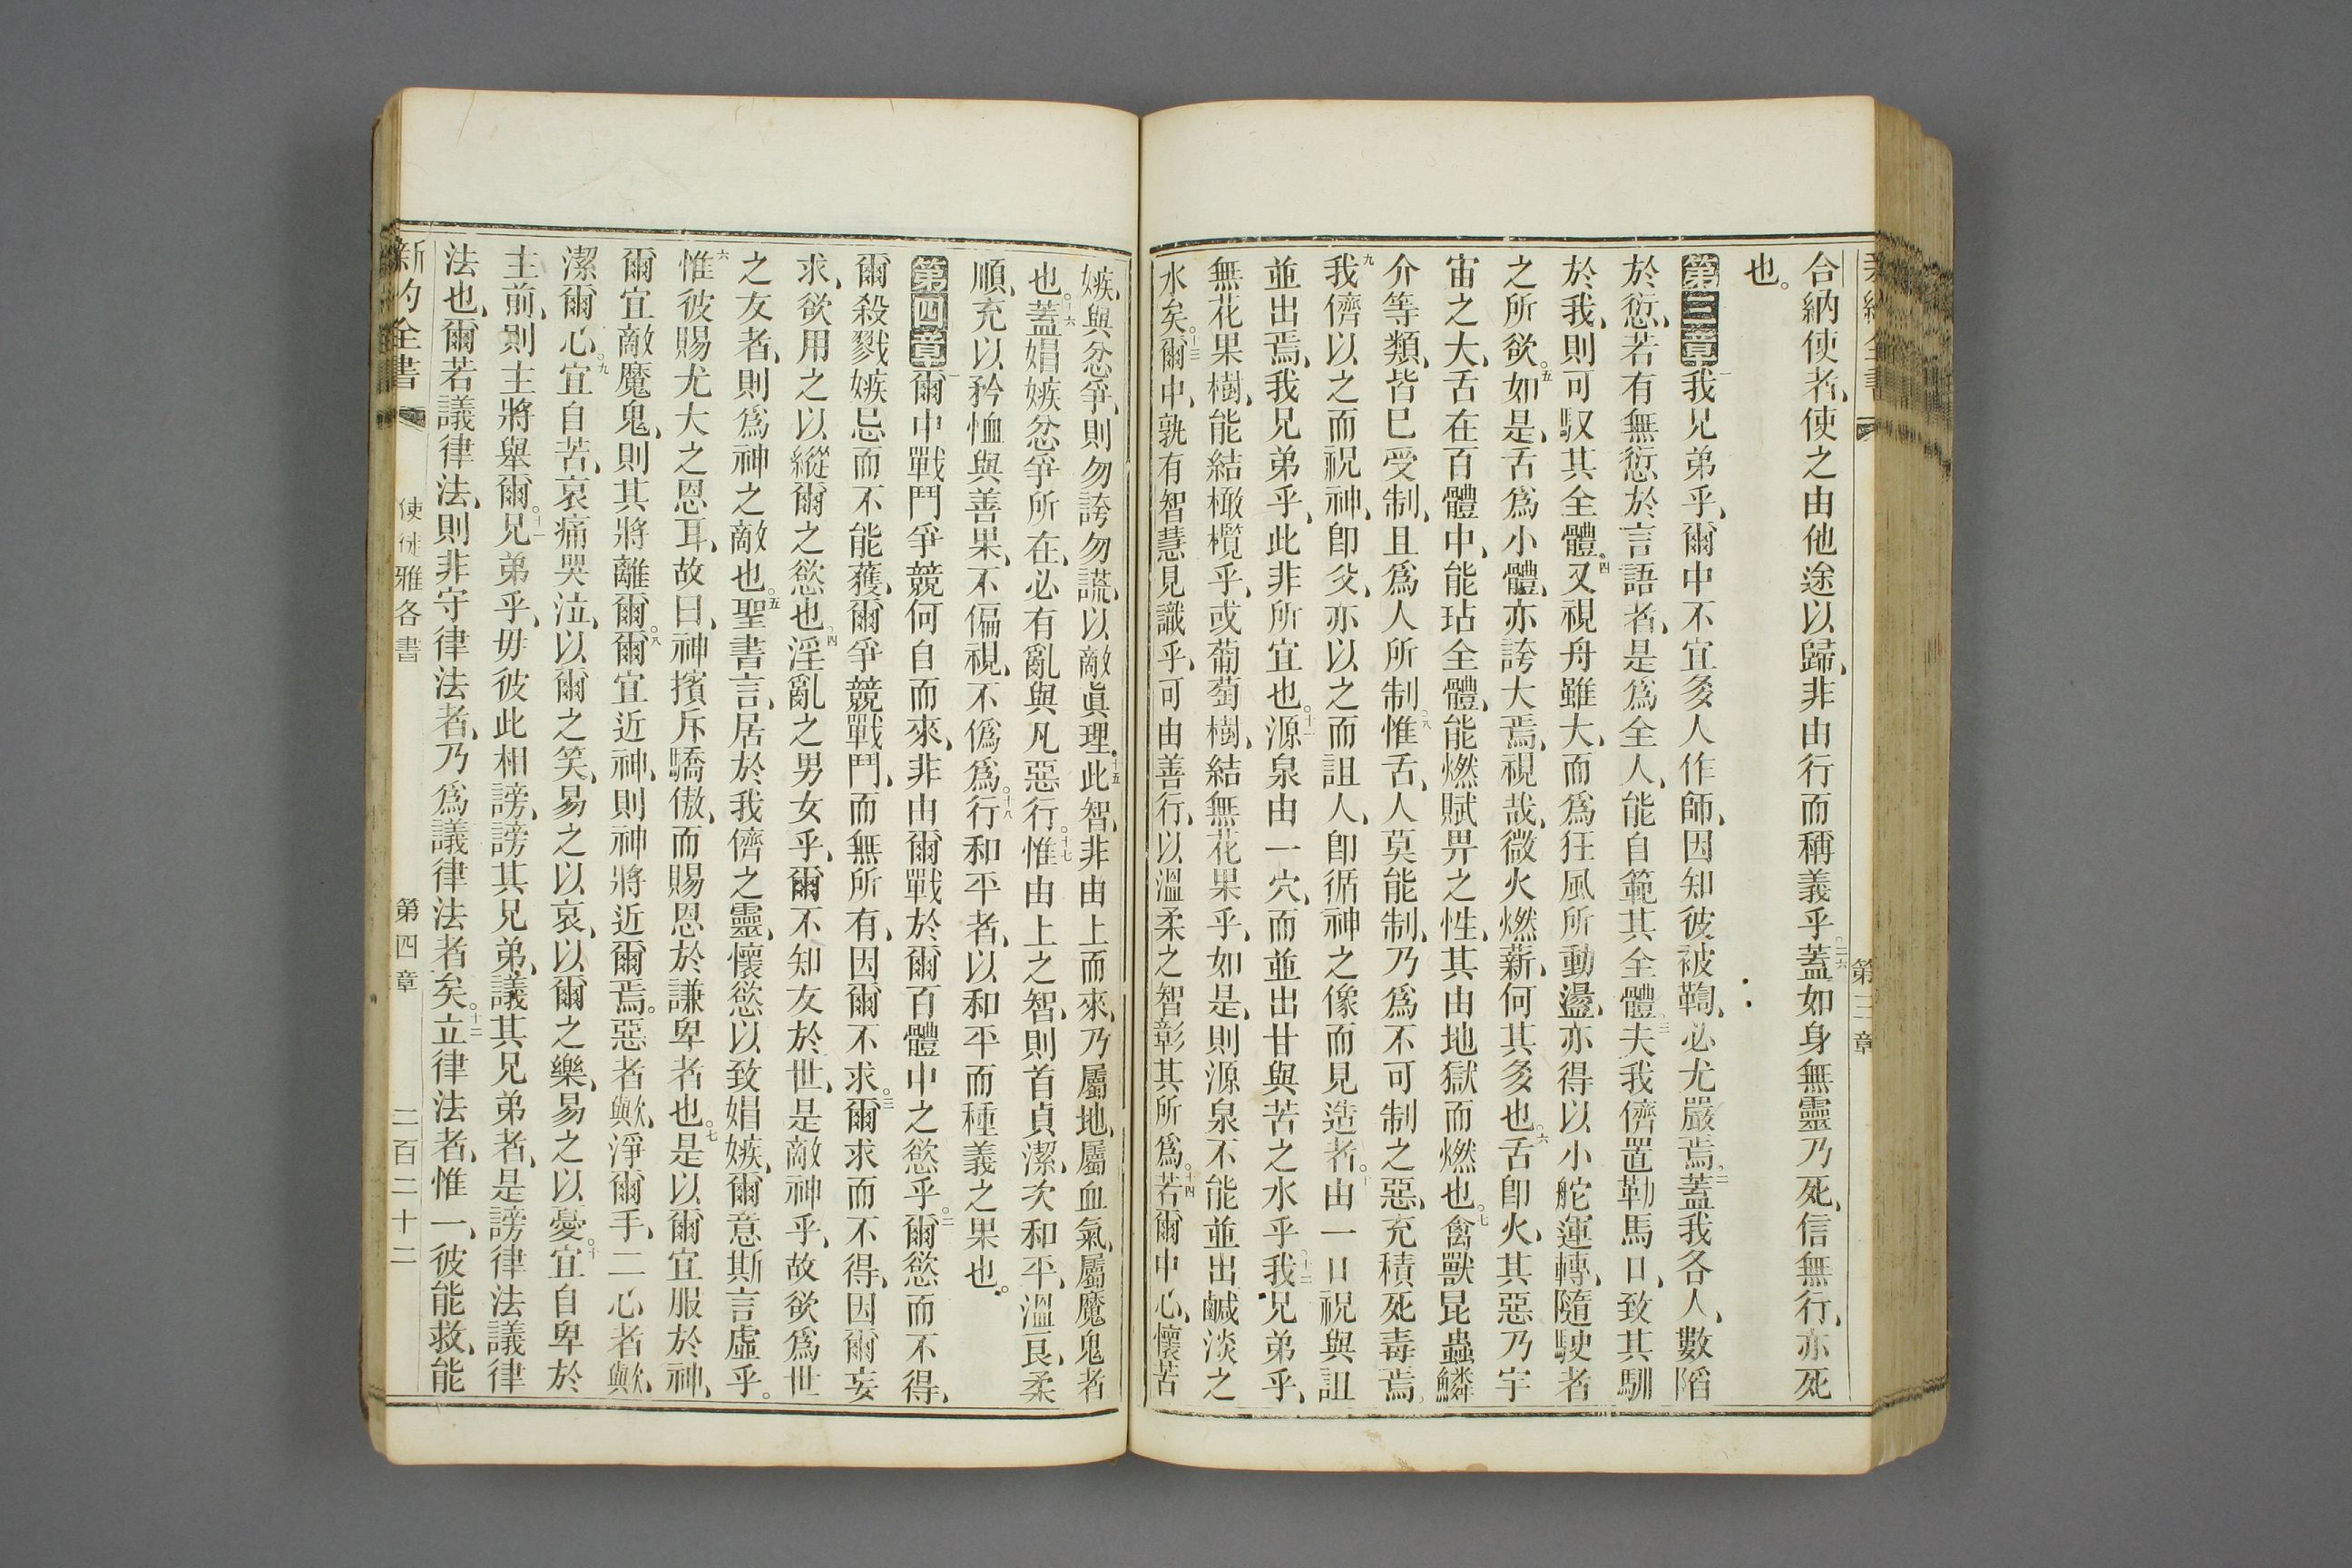 合納使者、使之由他途以歸、非由行而稱義乎。二六蓋如身無靈乃死、信無行、亦死
也。
第三章一我兄弟乎、爾中不宜多人作師、因知彼被鞫、必尤嚴焉、二蓋我各人、數陷
於愆、若有無愆於言語者、是爲全人、能自範其全體、三夫我儕置勒馬口、致其馴
於我、則可馭其全體。四又視舟雖大、而爲狂風所動盪、亦得以小舵運轉、隨駛者
之所欲。五如是、舌爲小體、亦誇大焉、視哉、微火燃薪、何其多也。六舌卽火、其惡乃宇
宙之大、舌在百體中、能玷全體、能燃賦畀之性、其由地獄而燃也。七禽獸昆蟲鱗
介等類、皆已受制、且爲人所制、八惟舌、人莫能制、乃爲不可制之惡、充積死毒焉、
九我儕以之而祝神、卽父、亦以之而詛人、卽循神之像而見造者。十由一口祝與詛
並出焉、我兄弟乎、此非所宜也。十一源泉由一穴、而並出甘與苦之水乎、十二我兄弟乎、
無花果樹、能結橄欖乎、或葡萄樹、結無花果乎、如是、則源泉不能並出鹹淡之
水矣。十三爾中、孰有智慧見識乎、可由善行、以溫柔之智彰其所爲。十四若爾中心、懷苦
嫉、與忿爭、則勿誇勿謊、以敵眞理。十五此智、非由上而來、乃屬地、屬血氣、屬魔鬼者
也。十六蓋娼嫉忿爭所在、必有亂與凡惡行。十七惟由上之智、則首貞潔、次和平、溫良、柔
順、充以矜恤與善果、不偏視、不僞爲。十八行和平者、以和平而種義之果也。
第四章一爾中戰鬥爭競何自而來、非由爾戰於爾百體中之慾乎。二爾慾而不得、
爾殺戮嫉忌而不能獲、爾爭競戰鬥、而無所有、因爾不求。三爾求而不得、因爾妄
求、欲用之以縱爾之慾也、四淫亂之男女乎、爾不知友於世、是敵神乎、故欲爲世
之友者、則爲神之敵也。五聖書言、居於我儕之靈、懷慾以致娼嫉、爾意斯言虛乎。
六惟彼賜尤大之恩耳、故曰、神擯斥驕傲、而賜恩於謙卑者也。七是以爾宜服於神、
爾宜敵魔鬼、則其將離爾。八爾宜近神、則神將近爾焉。惡者歟、淨爾手、二心者歟、
潔爾心。九宜自苦、哀痛哭泣、以爾之笑、易之以哀、以爾之樂、易之以憂。十宜自卑於
主前、則主將舉爾。十一兄弟乎、毋彼此相謗、謗其兄弟、議其兄弟者、是謗律法議律
法也、爾若議律法、則非守律法者、乃爲議律法者矣。十二立律法者、惟一、彼能救、能
新約全書 使徒雅各書 第四章 二百二十二